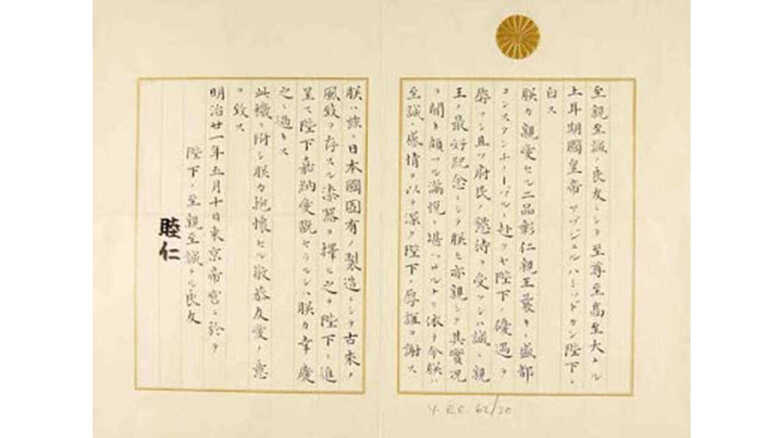 至親至誠ノ良友ニシテ至尊至高至大ナル
土耳期國皇帝アブジュルハミッドカン陛下ニ
白ス
朕カ親愛セル二品彰仁親王曩キニ盛都
コンスタンチノープルニ赴クヤ陛下ノ優遇ヲ
辱フシ且ツ府民ノ懇待ヲ受ケシハ誠ニ親
王ノ最好紀念ニシテ朕モ亦親シク其實況
ヲ聞キ頗フル滿悦ニ堪ヘサルナリ依テ今朕ハ
至誠ノ感情ヲ以テ深ク陛下ノ厚誼ヲ謝ス
朕ハ茲ニ日本國固有ノ製造ニシテ古來ノ
風致ヲ存スル漆器ヲ擇ヒ之ヲ陛下ニ進
呈ス陛下嘉納愛翫セラルレハ朕カ幸慶
之ニ過キス
此機ニ附シ朕カ抱懐セル敬恭友愛ノ意
ヲ致ス
明治廿一年五月十日東京帝宮ニ於テ
陛下ノ至親至誠ナル良友
睦仁
Y. EE. 62/20